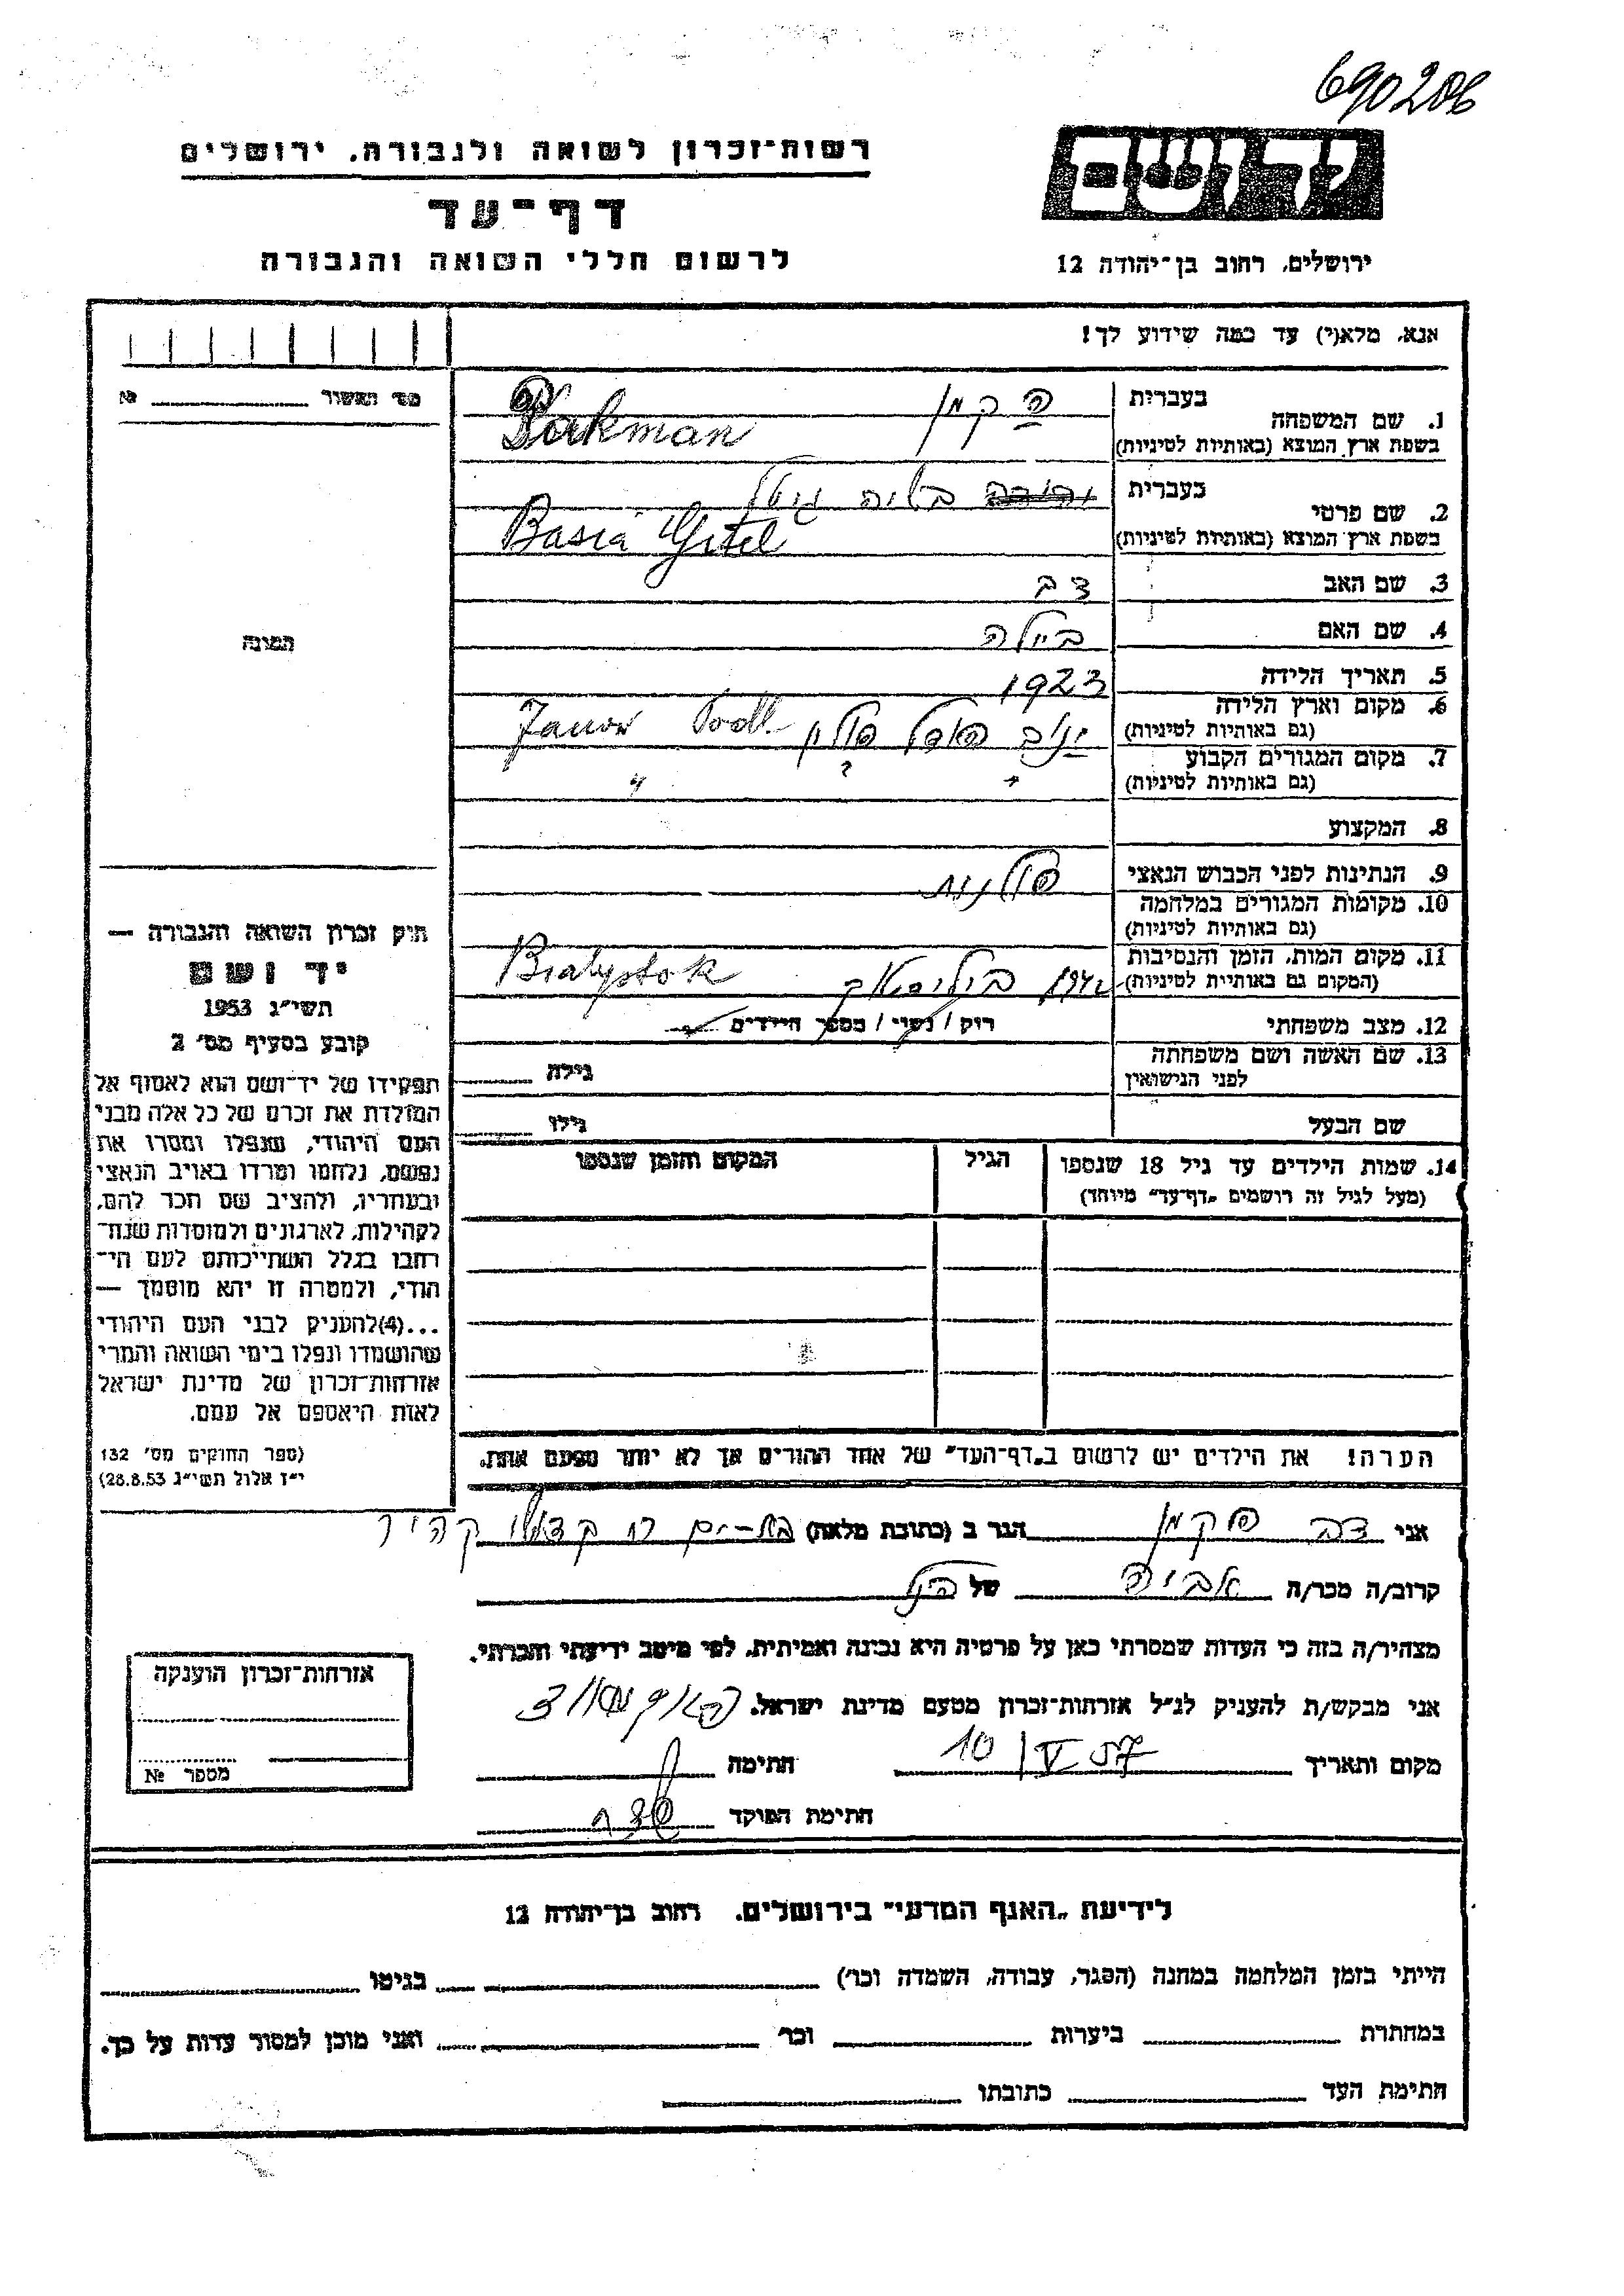 690206
רשות־זכרון לשואה ולגבורה, ירושלים
דף־עד
לרשום חללי השואה והגבורה
יד ושם
ירושלים, רחוב בן־יהודה 12
אנא, מלא(י) עד כמה שידוע לך!
מס' האשור №
1. שם המשפחה
בעברית
פקמן
בשפת ארץ המוצא (באותיות לטיניות)
Pakman
2. שם פרטי
בעברית
בשיה גיטל
בשפת ארץ המוצא (באותיות לטיניות)
Basia Gitel
3. שם האב דב
4. שם האם ביילה
5. תאריך הלידה 1923
6. מקום וארץ הלידה
(גם באותיות לטיניות)
ינוב פודל פולין Janow Podl.
7. מקום המגורים הקבוע
(גם באותיות לטיניות)
" ? "
8. המקצוע
9. הנתינות לפני הכבוש הנאצי פולנית
10. מקומות המגורים במלחמה
(גם באותיות לטיניות)
11. מקום המות, הזמן והנסיבות
(המקום גם באותיות לטיניות)
1942 ביליסטאק Bialystok
12. מצב משפחתי רוק / נשוי / מספר הילדים
13. שם האשה ושם משפחתה
לפני הנישואין
גילה
שם הבעל גילו
14. שמות הילדים עד גיל 18 שנספו
(מעל לגיל זה רושמים „דף־עד" מיוחד)
הגיל
המקום והזמן שנספו
הערה! את הילדים יש לרשום ב„דף־העד" של אחד ההורים אך לא יותר מפעם אחת.
התמונה
חוק זכרון השואה והגבורה —
יד ושם
תשי"ג 1953
קובע בסעיף מס' 2
תפקידו של יד־ושם הוא לאסוף אל
המולדת את זכרם של כל אלה מבני
העם היהודי, שנפלו ומסרו את
נפשם, נלחמו ומרדו באויב הנאצי
ובעוזריו, ולהציב שם וזכר להם,
לקהילות, לארגונים ולמוסדות שנח־
רבו בגלל השתייכותם לעם הי־
הודי, ולמטרה זו יהא מוסמך —
...(4)להעניק לבני העם היהודי
שהושמדו ונפלו בימי השואה והמרי
אזרחות־זכרון של מדינת ישראל
לאות היאספם אל עמם.
(ספר החוקים מס' 132
י"ז אלול תשי"ג 28.8.53)
אני דב פקמן הגר ב (כתובת מלאה) בת-ים
קרוב/ה מכר/ה אביה של הנ"ל
מצהיר/ה בזה כי העדות שמסרתי כאן על פרטיה היא נכונה ואמיתית, לפי מיטב ידיעתי והכרתי.
אני מבקש/ת להעניק לנ"ל אזרחות־זכרון מטעם מדינת ישראל.
מקום ותאריך 10/V 57 חתימה
חתימת הפוקד
אזרחות־זכרון הוענקה
מספר №
לידיעת „האגף המדעי" בירושלים, רחוב בן־יהודה 12
הייתי בזמן המלחמה במחנה (הסגר, עבודה, השמדה וכו') בגיטו
במחתרת ביערות וכו' ואני מוכן למסור עדות על כך.
חתימת העד כתובתו